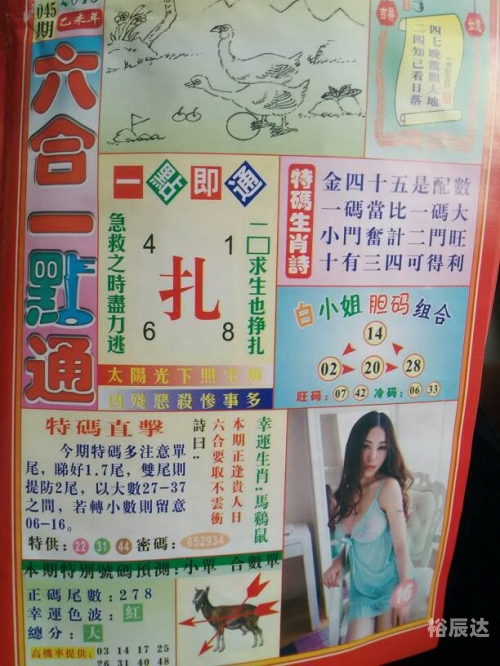 045
期
乙未年
六合一點通
吉祥
如意
四七晚霞照大地
二四知己看日落
一點即通
急救之時盡力逃
4
1
扎
6
8
一口求生也掙扎
太陽光下照生
凶殘惡殺慘事多
特碼生肖詩
金四十五是配數
一碼當比一碼大
小門奮計二門旺
十有三四可得利
白小姐 胆码 组合
14
02 20 28
旺码：07 42 冷码：06 33
特碼直擊
今期特碼多注意單
尾，睇好1.7尾，雙尾則
提防2尾，以大數27-37
之間，若轉小數則留意
06-16。
特供：22 31 44 密碼：652934
幸運生肖：馬鷄鼠
本期正逢貴人日
六合要取不雲衝
詩曰：
本期特别號碼預測：小單 合數單
正碼尾數：278
幸運色波：紅
總分：大
高機率提供：03 14 17 25
26 31 40 48
16
裕辰达